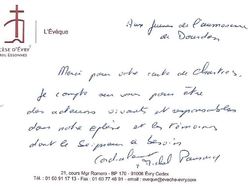 L'Évêque
DIOCÈSE D'ÉVRY
Aux Jeunes de l'aumônerie
de Dourdan
Merci pour votre carte de Chartres.
Je compte sur vous pour être
des acteurs vivants et responsables
dans notre église et les témoins
dont le Seigneur a besoin
Cordialement
Michel
21, cours Mgr Romero - BP 170 - 91006 Évry Cedex
Tél. : 01 60 91 17 13 - Fax : 01 60 77 48 91 - email :